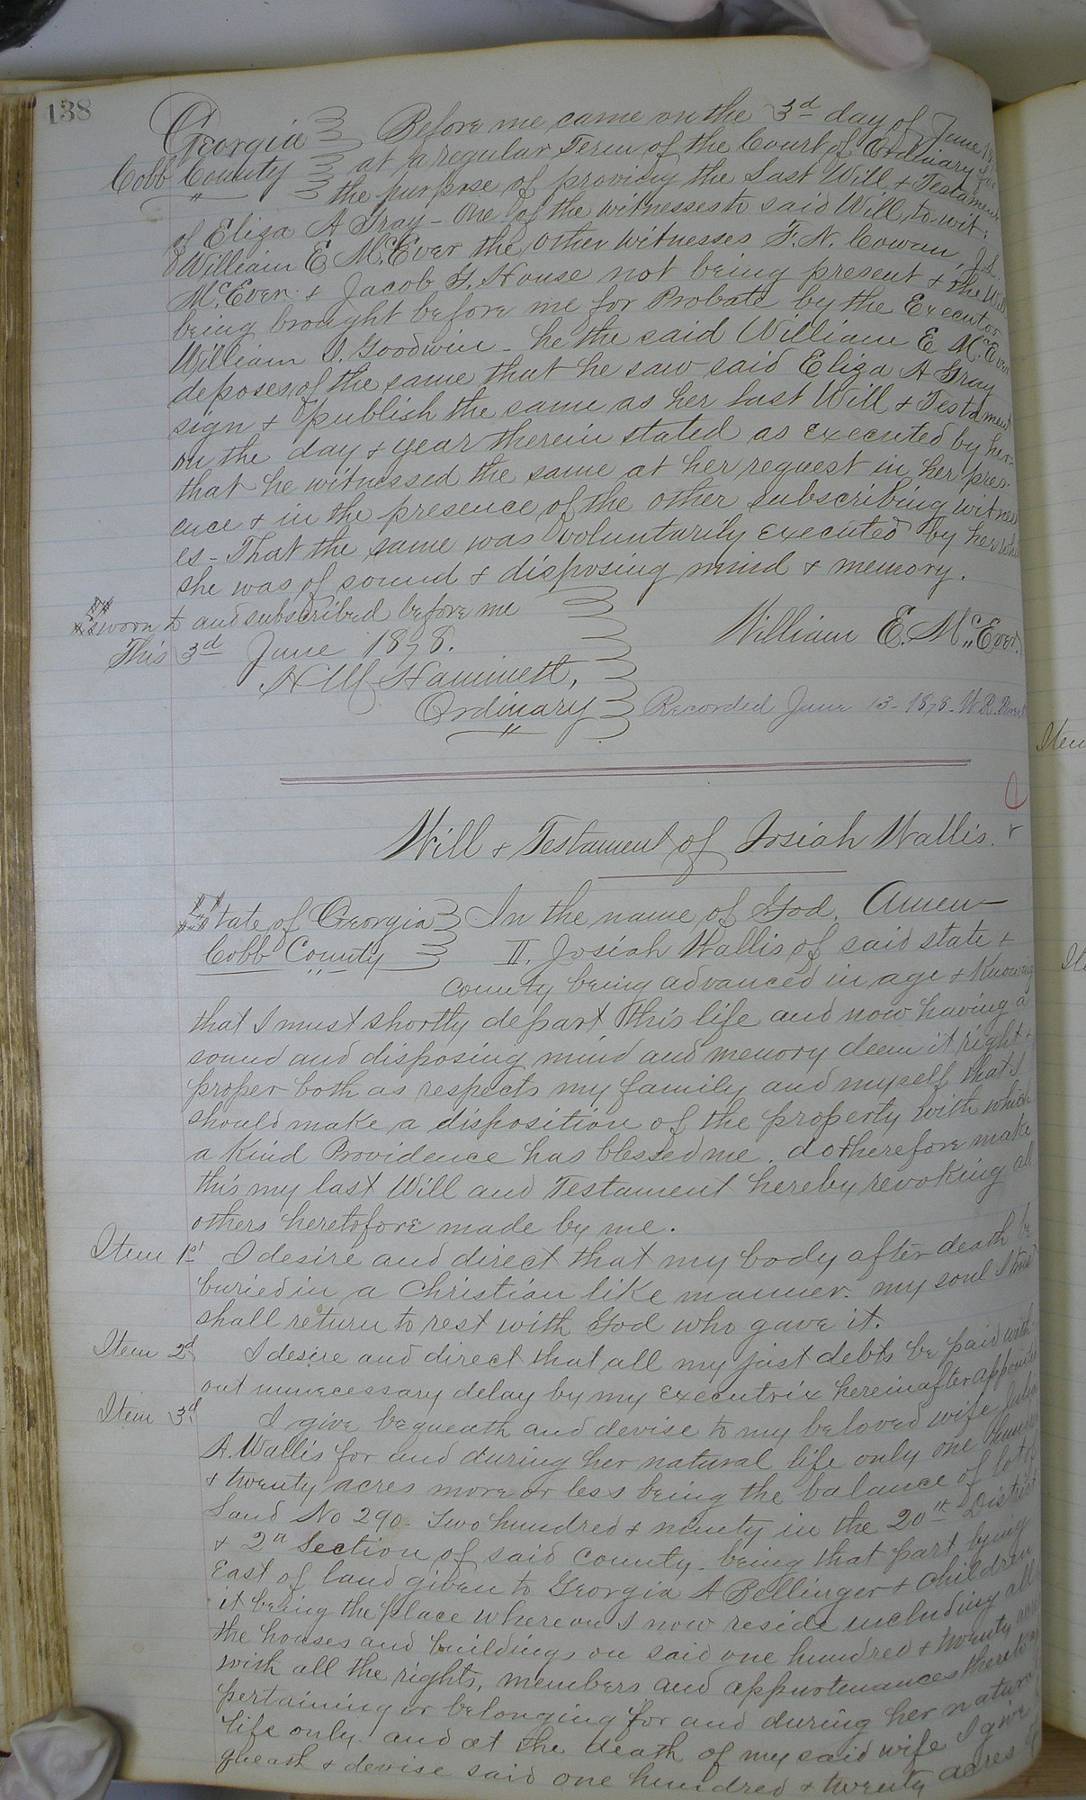 138
Georgia Before me came on the 3d day of June
Cobb County at a regular Term of the Court of Ordinary for
the purpose of proving the Last Will & Testament
of Eliza A Gray - One of the witnesses to said Will to wit:
William E McEver the other witnesses F. N. Cowan,
McEver & Jacob G. House not being present & the Will
being brought before me for Probate by the Executor
William S. Goodwin - he the said William E McEver
deposes of the same that he saw said Eliza A Gray
sign & publish the same as her last Will & Testament
on the day & year therein stated as executed by her.
that he witnessed the same at her request in her pres-
ence & in the presence of the other subscribing witness
es - That the same was voluntarily executed by her
she was of sound & disposing mind & memory.
Sworn to and subscribed before me
This 3d June 1878. William E. McEver.
Hammett,
Ordinary Recorded June 13- 1878- W.R.
Will & Testament of Josiah Wallis.
State of Georgia In the name of God, Amen
Cobb County II. Josiah Wallis of said state &
county being advanced in age & Knowing
that I must shortly depart this life and now having a
sound and disposing mind and memory deem it right &
proper both as respects my family and myself that I
should make a disposition of the property with which
a kind Providence has blessed me. do therefore make
this my last Will and Testament hereby revoking all
others heretofore made by me.
Item 1st I desire and direct that my body after death be
buried in a Christian like manner. my soul I trust
shall return to rest with God who gave it.
Item 2d I desire and direct that all my just debts be paid with
out unnecessary delay by my executrix hereinafter appointed
Item 3d I give bequeath and devise to my beloved wife
A. Wallis for and during her natural life only one hundred
& twenty acres more or less being the balance of lot of
Land No 290. Two hundred & ninety in the 20th District
& 2n Section of said county. being that part lying
East of land given to Georgia A Bellinger & children
it being the place whereon I now reside including all
the houses and buildings on said one hundred & twenty acres
with all the rights, members and appurtenances thereto
pertaining or belonging for and during her natural
life only. and at the death of my said wife I give
queath & devise said one hundred & twenty acres of
Item